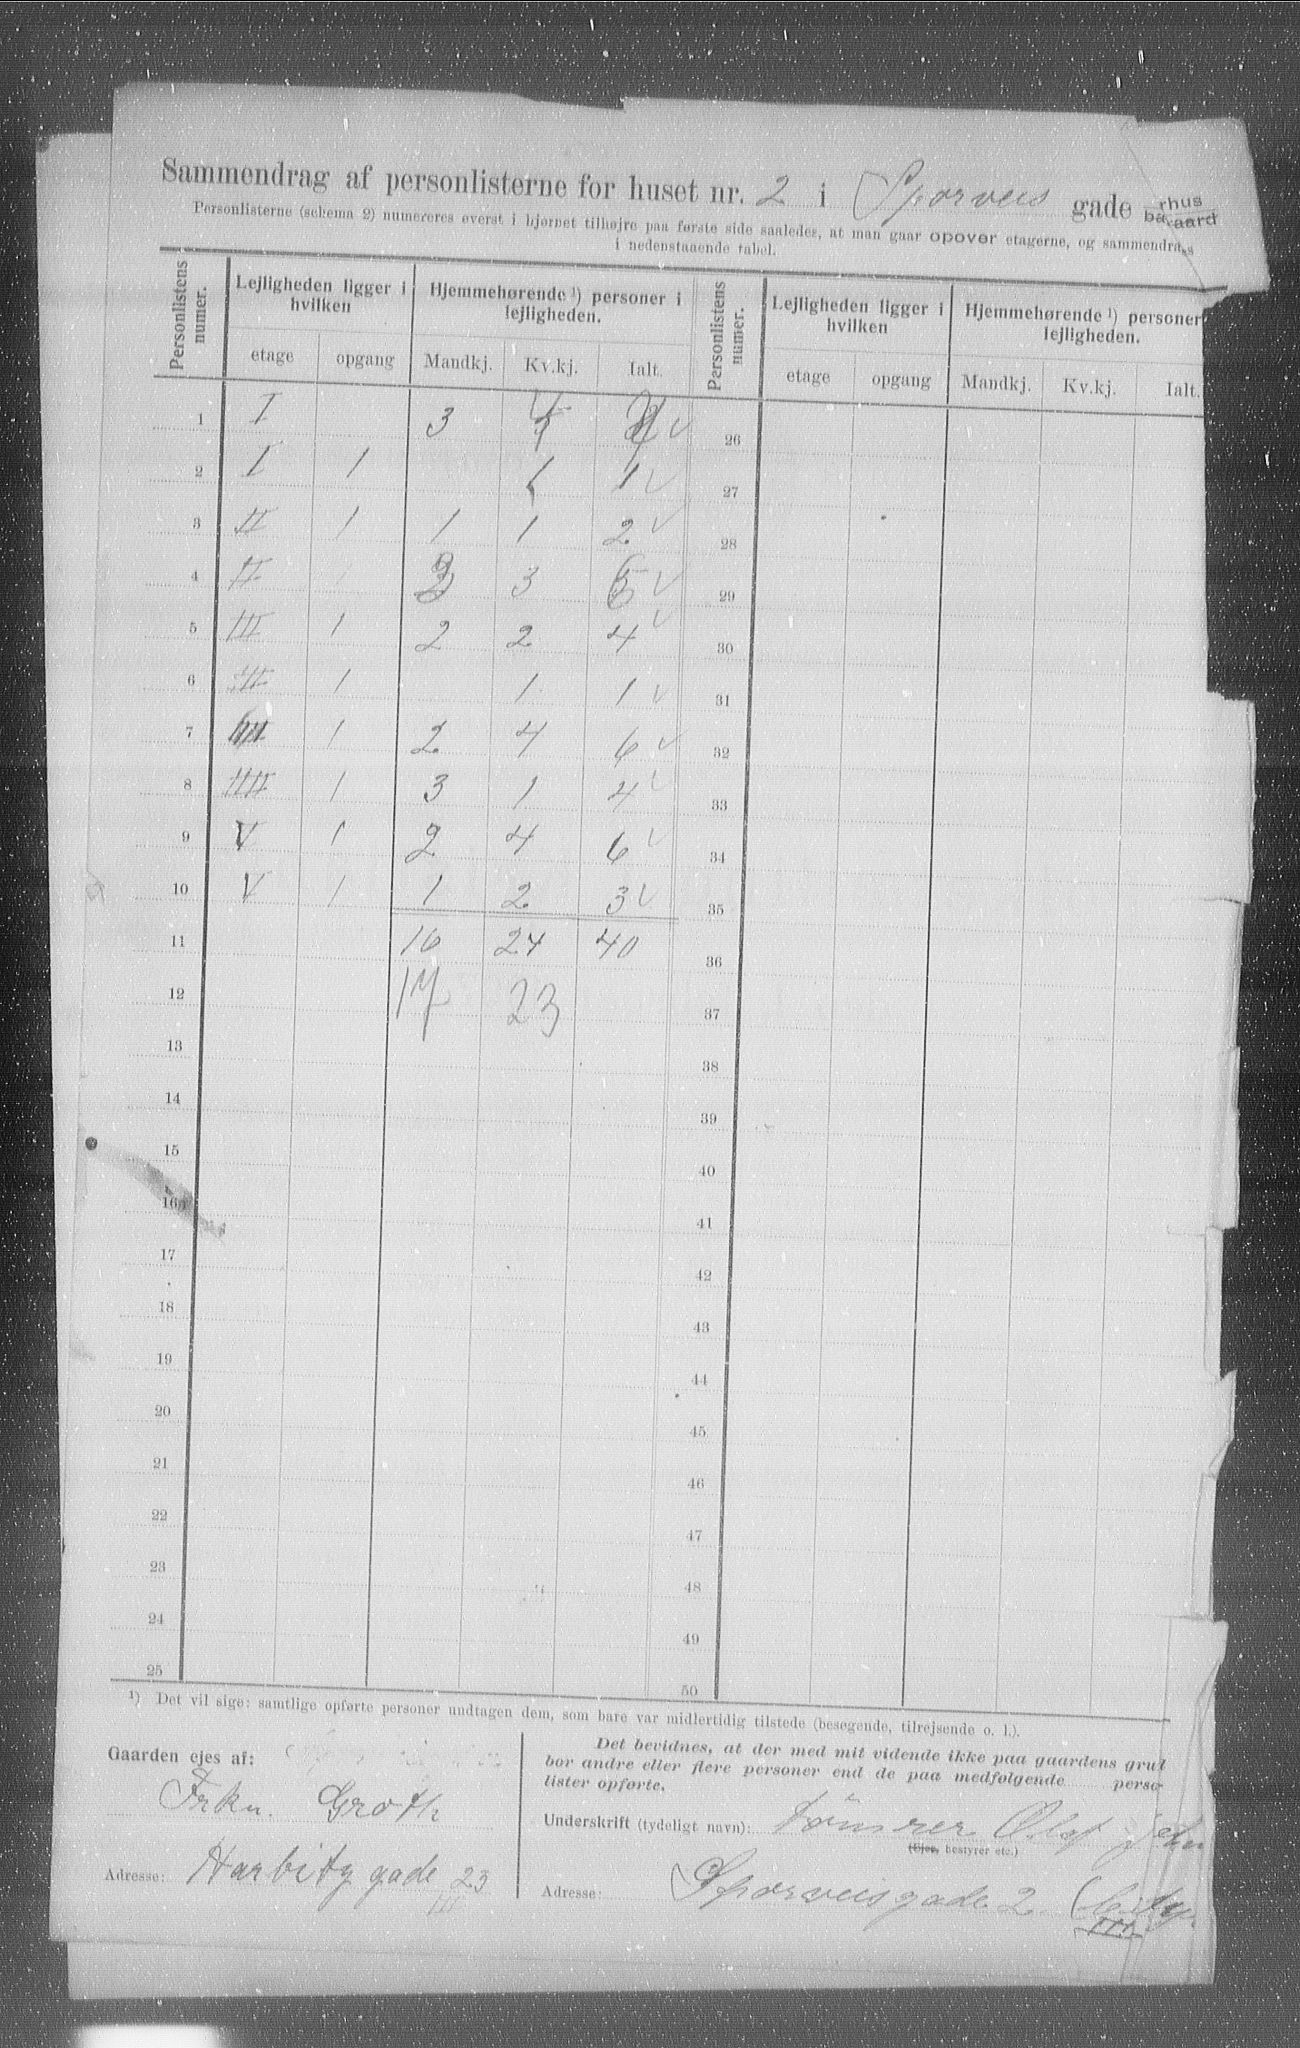 Sammendrag af personlisterne for huset nr. 2 i Sporveis gade
Personlisterne (schema 2) numereres øverst i hjørnet tilhøjre paa første side saaledes, at man gaar opover etagerne, og sammendra
i nedenstaaende tabel.
Personlistens numer. Lejligheden ligger i hvilken Hjemmehørende ¹) personer i lejligheden. Personlistens numer. Lejligheden ligger i hvilken Hjemmehørende ¹) personer lejligheden.
etage opgang Mandkj. Kv.kj. Ialt. etage opgang Mandkj. Kv.kj. Ialt.
1 I 3 26
2 I 1 1 1 27
3 II 1 1 1 2 28
4 II 3 29
5 III 1 2 2 4 30
6 III 1 1 1 31
7 1 2 4 6 32
8 IIII 1 3 1 4 33
9 V 1 2 4 6 34
10 V 1 1 2 3 35
11 16 24 40 36
12 17 23 37
13 38
14 39
15 40
16 41
17 42
18 43
19 44
20 45
21 46
22 47
23 48
24 49
25 50
¹) Det vil sige: samtlige opførte personer undtagen dem, som bare var midlertidig tilstede (besøgende, tilrejsende o. l.).
Gaarden ejes af:
Frkn. Groth
Adresse: Harbitz gade 23
III
Det bevidnes, at der med mit vidende ikke paa gaardens grun
bor andre eller flere personer end de paa medfølgende perso
lister opførte.
Underskrift (tydeligt navn): Tömrer Olaf
(Ejer, bestyrer etc.)
Adresse: Sporveisgade 2
III